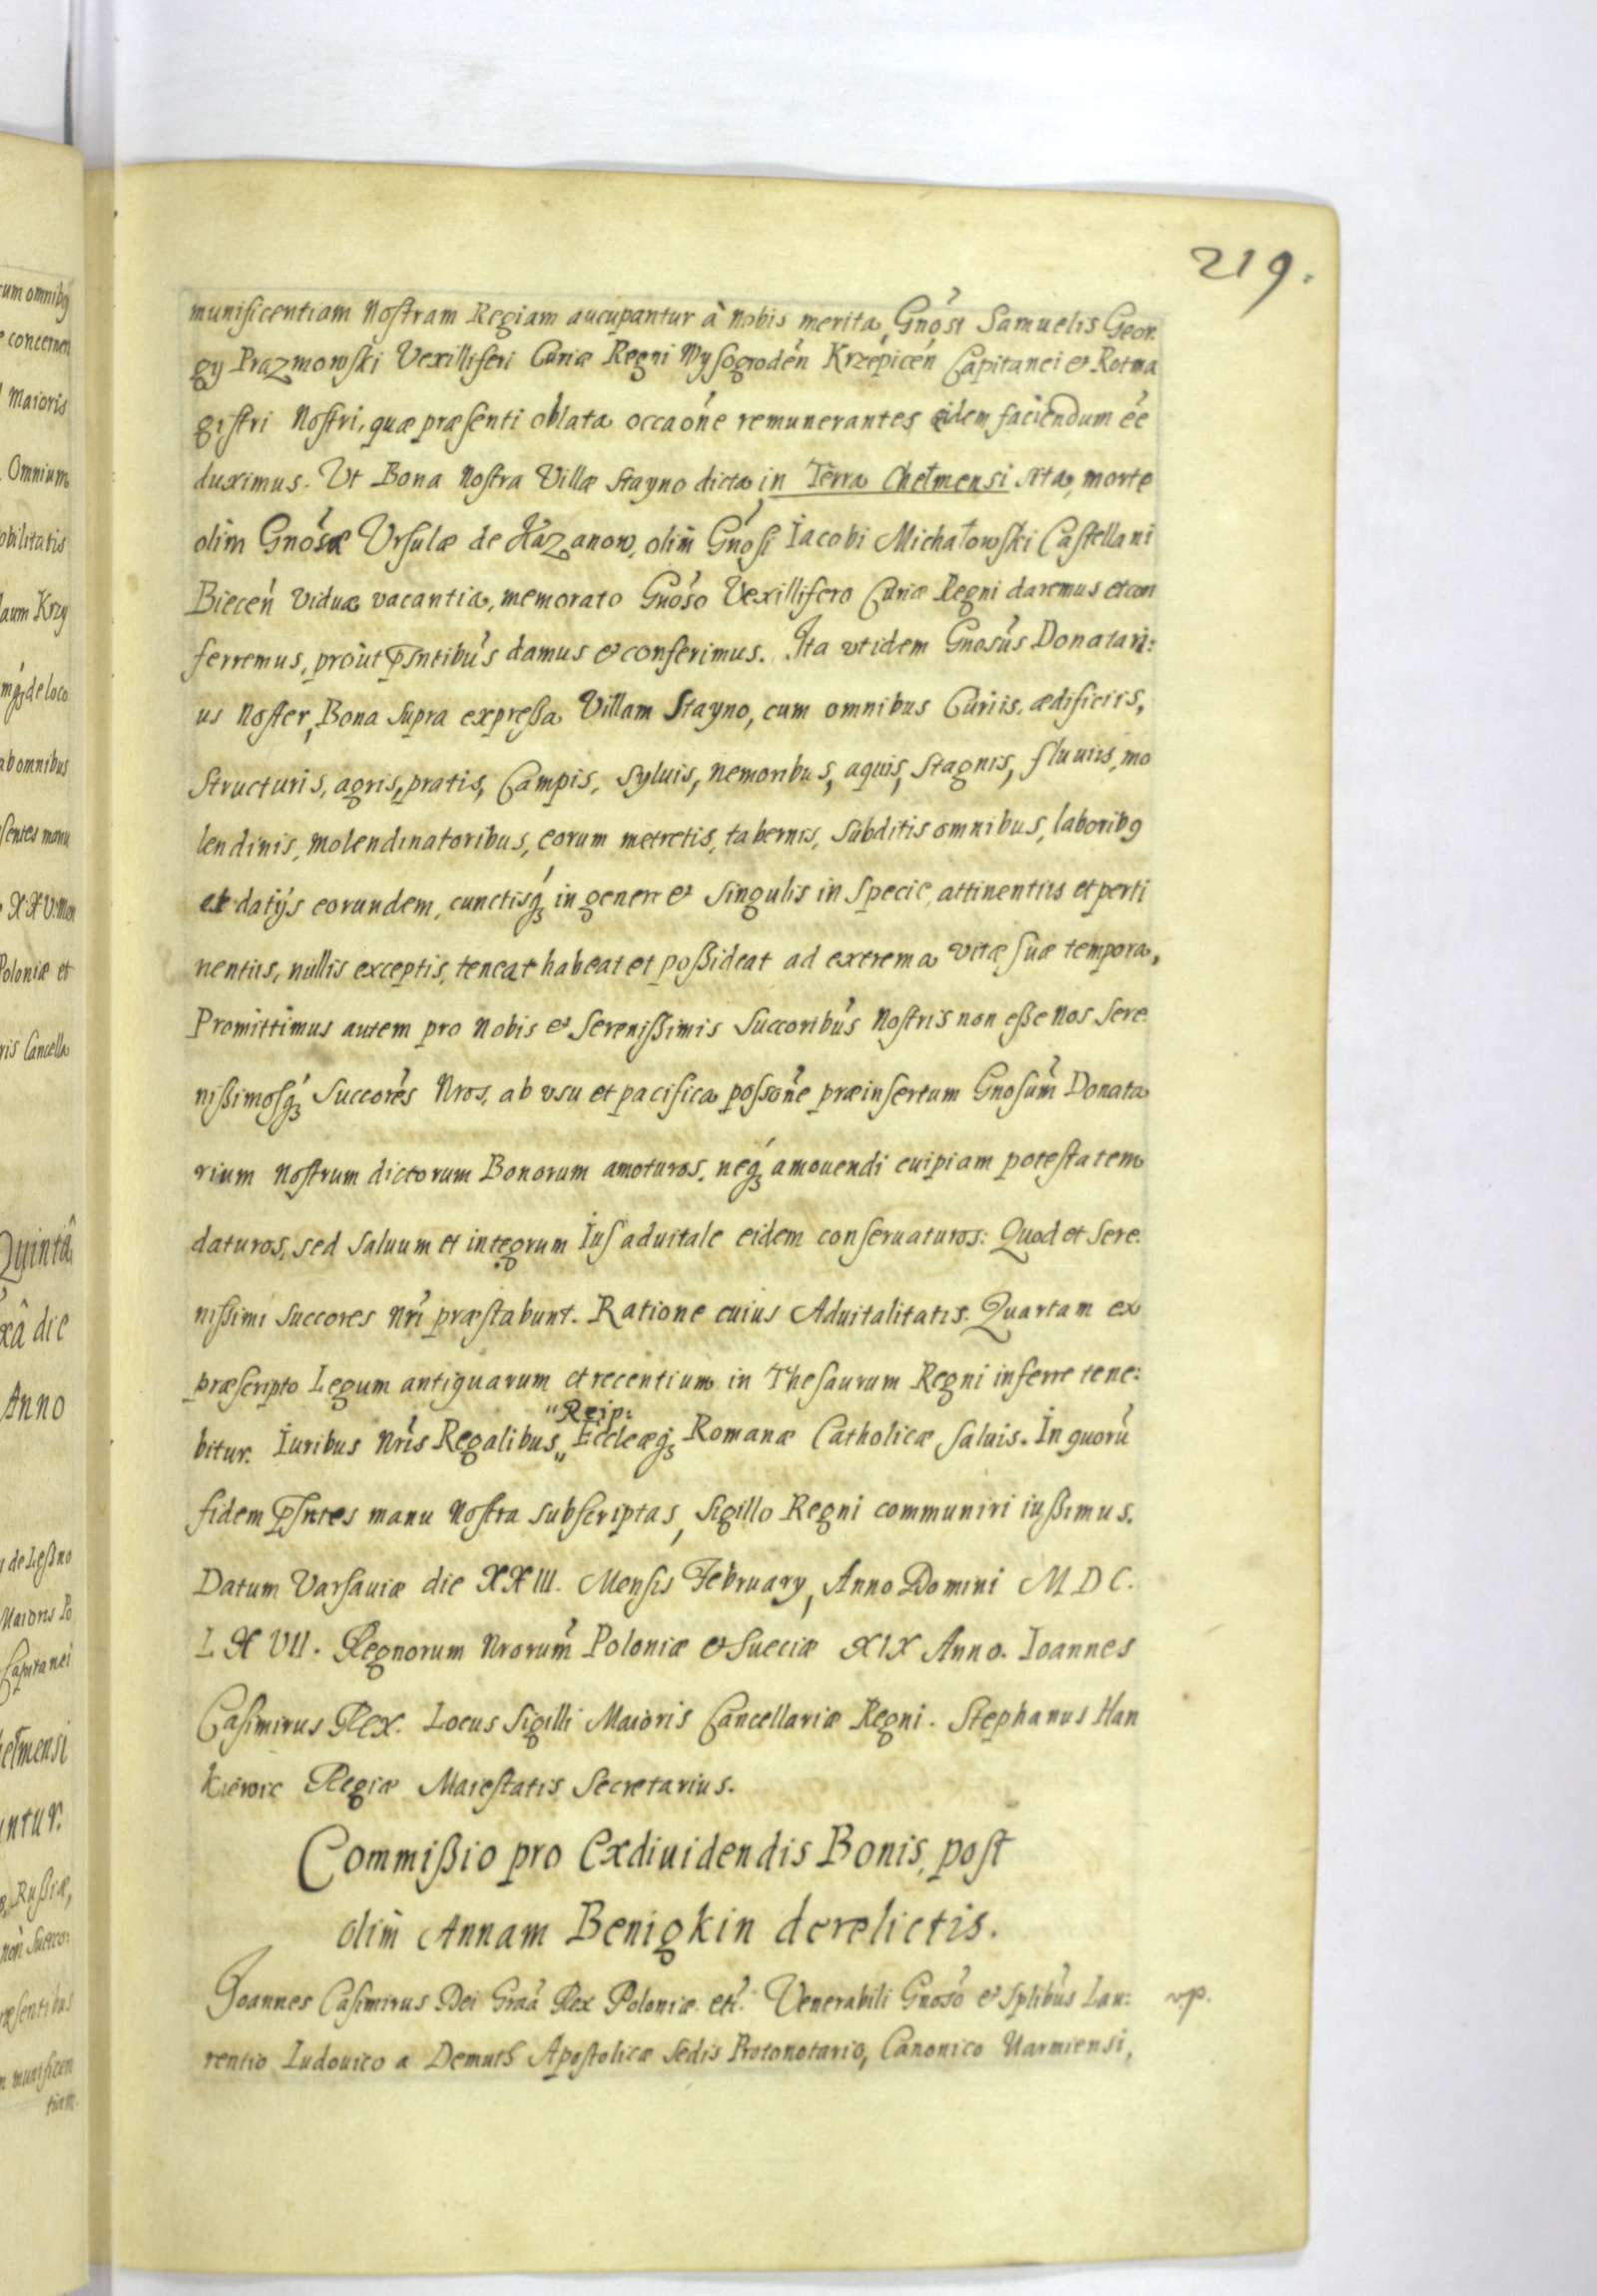 219.
munificentiam Nostram Regiam aucupantur à nobis merita, Gnosi Samuelis Geor:
gy Prazmowski Vexilliferi Curiæ Regni Wysogroden Krzepicen Capitanei et Rotma
gistri Nostri, quæ præsenti oblata occaone remunerantes eidem faciendum ee
duximus. Vt Bona Nostra Villæ Stayno dicta in Terra Chełmensi sita, morte
olim Gnosæ Vrsulæ de Kazanow, olim Gnosi Iacobi Michałowski Castellani
Biecen viduæ vacantia, memorato Gnoso Vexillifero Curiæ Regni daremus et con
ferremus, prout pntibus damus et conferimus. Ita vt idem Gnosus Donatari:
us Noster, Bona supra expressa Villam Stayno, cum omnibus Curiis, ædificiis,
structuris, agris, pratis, Campis, syluis, nemoribus, aquis, stagnis, fluuiis, mo
lendinis, molendinatoribus, eorum metretis, tabernis, subditis omnibus, laboribq
et datijs eorundem, cunctisq in genere et singulis in specie, attinentiis et perti
nentiis, nullis exceptis, teneat habeat et possideat ad extrema vitæ suæ tempora,
Promittimus autem pro Nobis et Serenissimis Succoribus Nostris non esse Nos Sere
nissimosq Succores Nros, ab vsu et pacifica possone præinsertum Gnosum Donata
rium Nostrum dictorum Bonorum amoturos, neq amouendi cuipiam potestatem
daturos, sed saluum et integrum Ius aduitale eidem conseruaturos: Quod et Sere:
nissimi Succores Nri præstabunt. Ratione cuius Aduitalitatis. Quartam ex
præscripto Legum antiquarum et recentium in Thesaurum Regni inferre tene:
"Reip:
bitur. Iuribus Nris Regalibus,, Eccleæq Romanæ Catholicæ saluis. In quoru
fidem pntes manu Nostra subscriptas, Sigillo Regni communiri iussimus.
Datum Varsauiæ die XXIII. Mensis February, Anno Domini M D C.
L X VII. Regnorum Nrorum Poloniæ et Sueciæ XIX Anno. Ioannes
Casimirus Rex. Locus Sigilli Maioris Cancellariæ Regni. Stephanus Han
kiewic Regiæ Maiestatis Secretarius.
Commissio pro Exdiuidendis Bonis, post
olim Annam Benigkin derelictis.
Ioannes Casimirus Dei Graa Rex Poloniæ. etc. Venerabili Gnoso et Splibus Lau:
rentio Ludouico a Demuth Apostolicæ Sedis Protonotario, Canonico Uarmiensi,